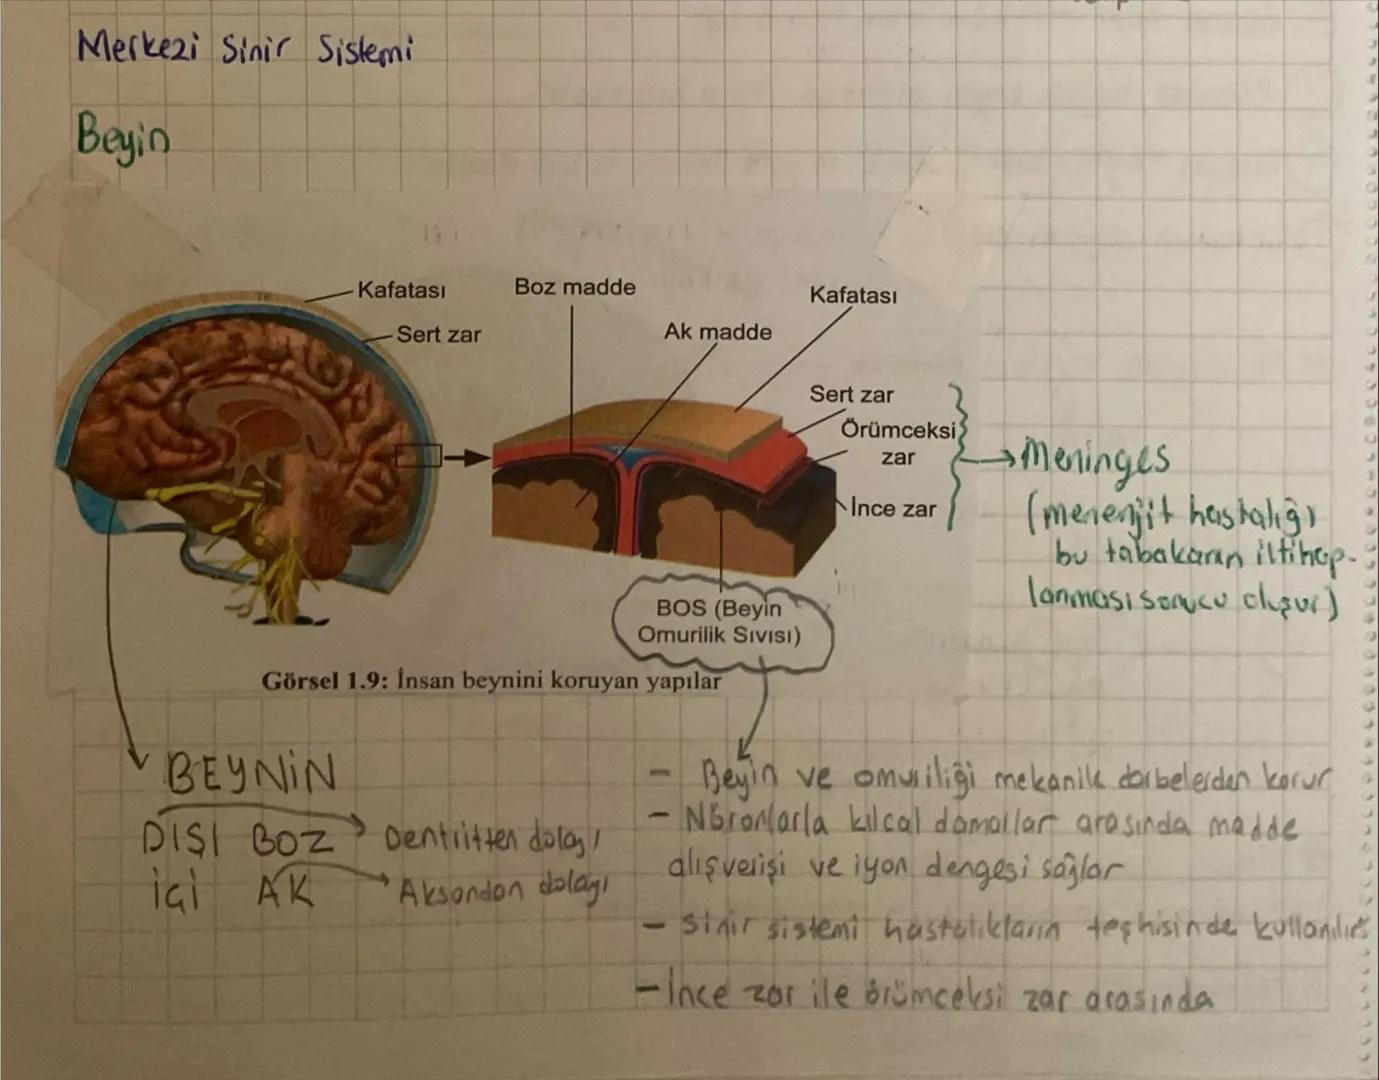 Merkezi Sinir Sistemi
Beyin
Kafatası
Sert zar
Boz madde
Ak madde
Kafatası
Sert zar
Örümceksi
zar
İnce zar
→ Meninges
(menenjit hastalığı
bu tabakanın iltihap-
lanması sonucu oluşur)
BOS (Beyin
Omurilik Sıvısı)
Görsel 1.9: İnsan beynini koruyan yapılar
BEYNİN
DIŞI BOZ → Dentritten dolayı
İÇİ AK → Aksondan dolayı
- Beyin ve omuriliği mekanik darbelerden korur
- Nöronlarla kılcal damarlar arasında madde
alışverişi ve iyon dengesi sağlar
- Sinir sistemi hastalıkların teşhisinde kullanılır
- İnce zar ile örümceksi zar arasında